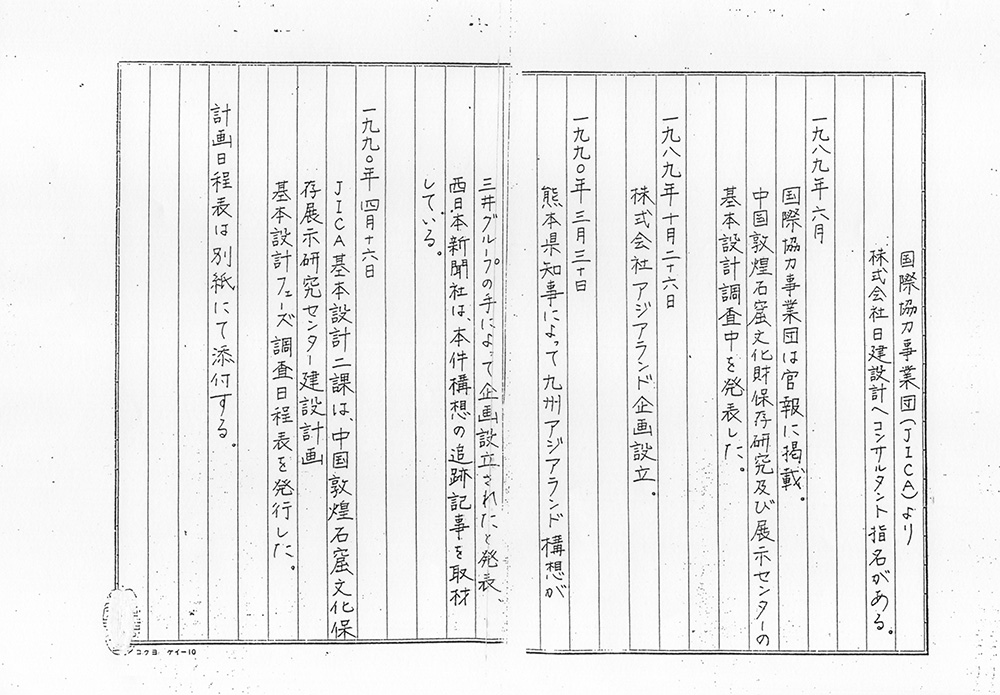 国際協力事業団(JICA)より
株式会社日建設計へコンサルタント指名がある。
一九八九年六月
国際協力事業団は官報に掲載。
中国敦煌石窟文化財保存研究及び展示センターの
基本設計調査中を発表した。
一九八九年十月二十六日
株式会社アジアランド企画設立。
一九九〇年三月三十日
熊本県知事によって九州アジアランド構想が
三井グループの手によって企画設立されたと発表、
西日本新聞社は、本件構想の追跡記事を取材
している。
一九九〇年四月十六日
JICA基本設計二課は、中国敦煌石窟文化保
存展示研究センター建設計画
基本設計フェーズ調査日程表を発行した。
計画日程表は別紙にて添付する。
コクヨ ケイー10